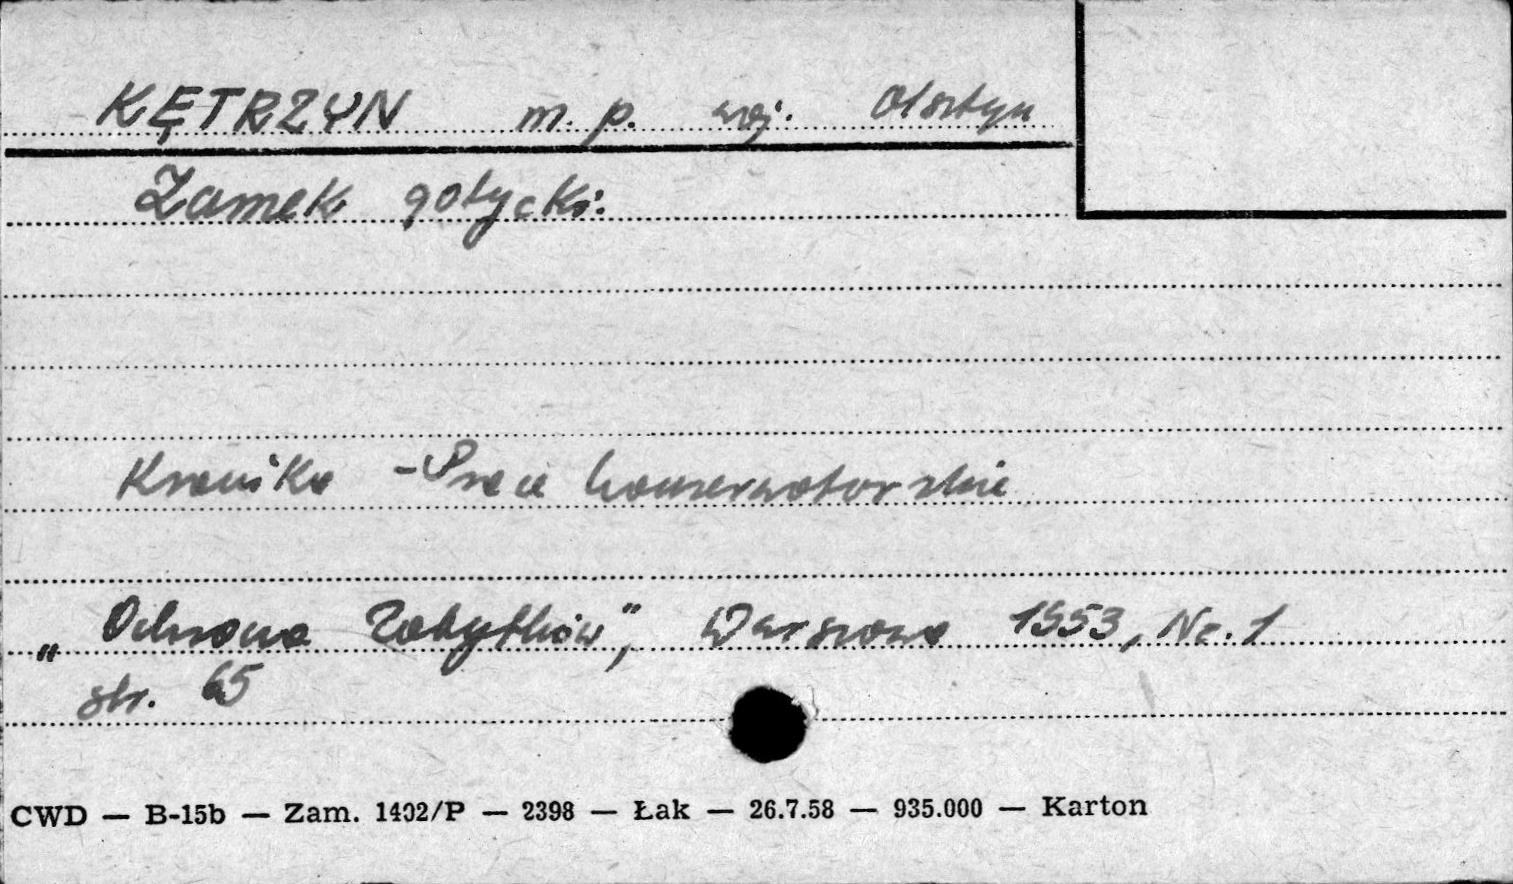 KĘTRZYN m. p. woj. Olsztyn
Zamek gotycki.
Kronika - Prace konserwatorskie
„Ochrona Zabytków”, Warszawa 1953, Nr. 1
str. 65
CWD — B-15b — Zam. 1402/P — 2398 — Łak — 26.7.58 — 935.000 — Karton